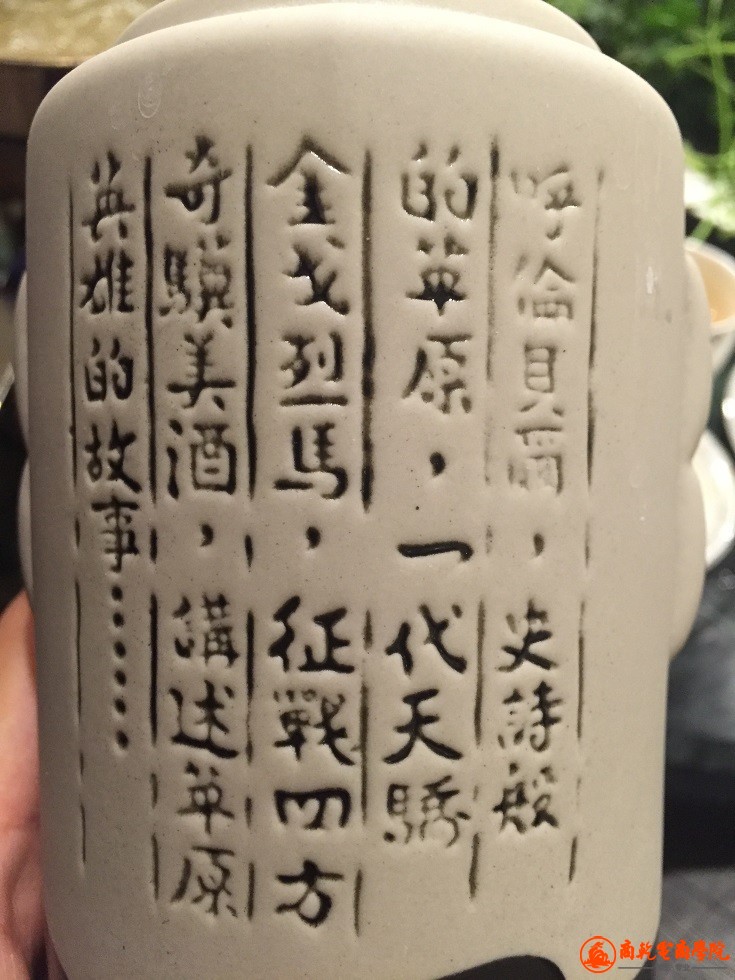 呼倫貝爾，史詩般
的草原，一代天驕
金戈烈馬，征戰四方
奇驥美酒，講述草原
英雄的故事……
商乾電商學院